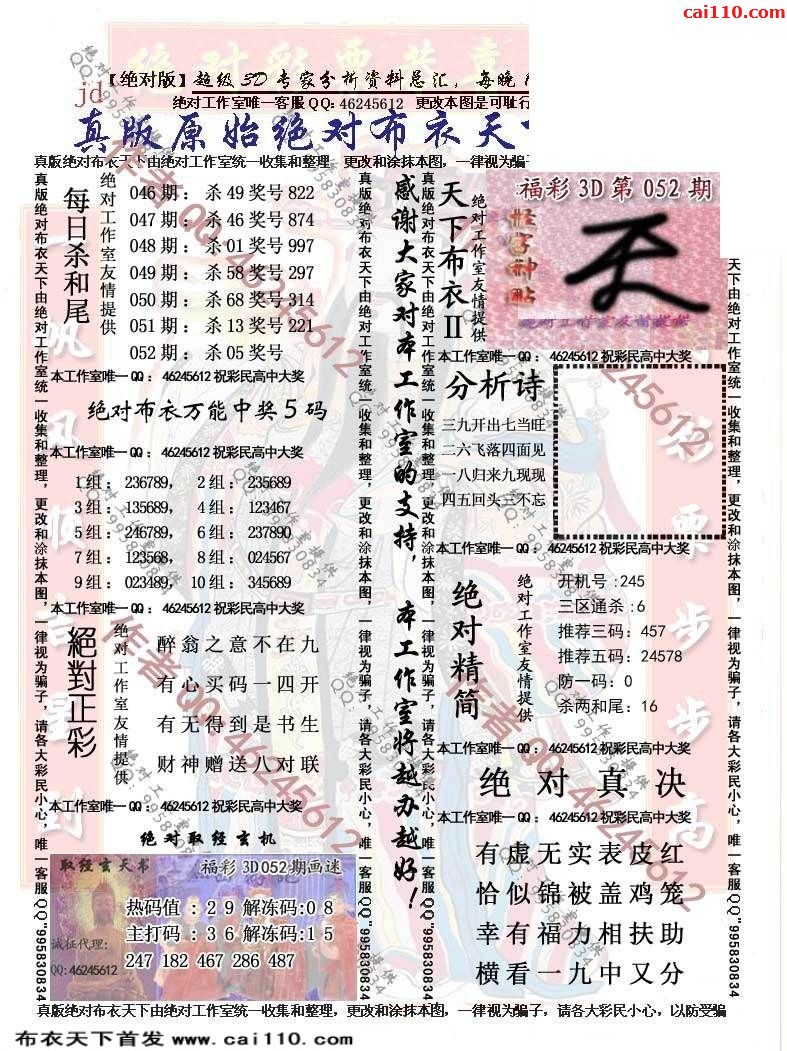 cai110.com
【绝对版】超级3D专家分析资料总汇，每晚
jd
绝对工作室唯一客服QQ: 46245612 更改本图是可耻行
真版原始绝对布衣天
真版绝对布衣天下由绝对工作室统一收集和整理，更改和涂抹本图，一律视为骗子
每日杀和尾
绝对工作室友情提供
046期：杀49奖号822
047期：杀46奖号874
048期：杀01奖号997
049期：杀58奖号297
050期：杀68奖号314
051期：杀13奖号221
052期：杀05奖号
本工作室唯一QQ：46245612祝彩民高中大奖
绝对布衣万能中奖5码
本工作室唯一QQ：46245612祝彩民高中大奖
1组：236789， 2组：235689
3组：135689， 4组：123467
5组：246789， 6组：237890
7组：123568， 8组：024567
9组：023489， 10组：345689
本工作室唯一QQ：46245612祝彩民高中大奖
絕對正彩
绝对工作室友情提供
醉翁之意不在九
有心买码一四开
有无得到是书生
财神赠送八对联
本工作室唯一QQ：46245612祝彩民高中大奖
绝对取经玄机
取经玄天书
福彩3D052期画迷
热码值：29解冻码:08
主打码：36解冻码:15
诚征代理:
QQ:46245612
247 182 467 286 487
感谢大家对本工作室的支持，本工作室将越办越好！
天下布衣II
绝对工作室友情提供
福彩3D第052期
怪字神点
绝对工作室友情提供
本工作室唯一QQ：46245612祝彩民高中大奖
分析诗
三九开出七当旺
二六飞落四面见
一八归来九现现
四五回头三不忘
本工作室唯一QQ：46245612祝彩民高中大奖
绝对精简
绝对工作室友情提供
开机号:245
三区通杀:6
推荐三码:457
推荐五码:24578
防一码:0
杀两和尾:16
本工作室唯一QQ：46245612祝彩民高中大奖
绝对真决
本工作室唯一QQ：46245612祝彩民高中大奖
有虚无实表皮红
恰似锦被盖鸡笼
幸有福力相扶助
横看一九中又分
真版绝对布衣天下由绝对工作室统一收集和整理，更改和涂抹本图，一律视为骗子，请各大彩民小心，唯一客服QQ"995830834
真版绝对布衣天下由绝对工作室统一收集和整理，更改和涂抹本图，一律视为骗子，请各大彩民小心，唯一客服QQ"995830834
真版绝对布衣天下由绝对工作室统一收集和整理，更改和涂抹本图，一律视为骗子，请各大彩民小心，唯一客服QQ"995830834
天下由绝对工作室统一收集和整理，更改和涂抹本图，一律视为骗子，请各大彩民小心，唯一客服QQ"995830834
真版绝对布衣天下由绝对工作室统一收集和整理，更改和涂抹本图，一律视为骗子，请各大彩民小心，以防受骗
布衣天下首发 www.cai110.com